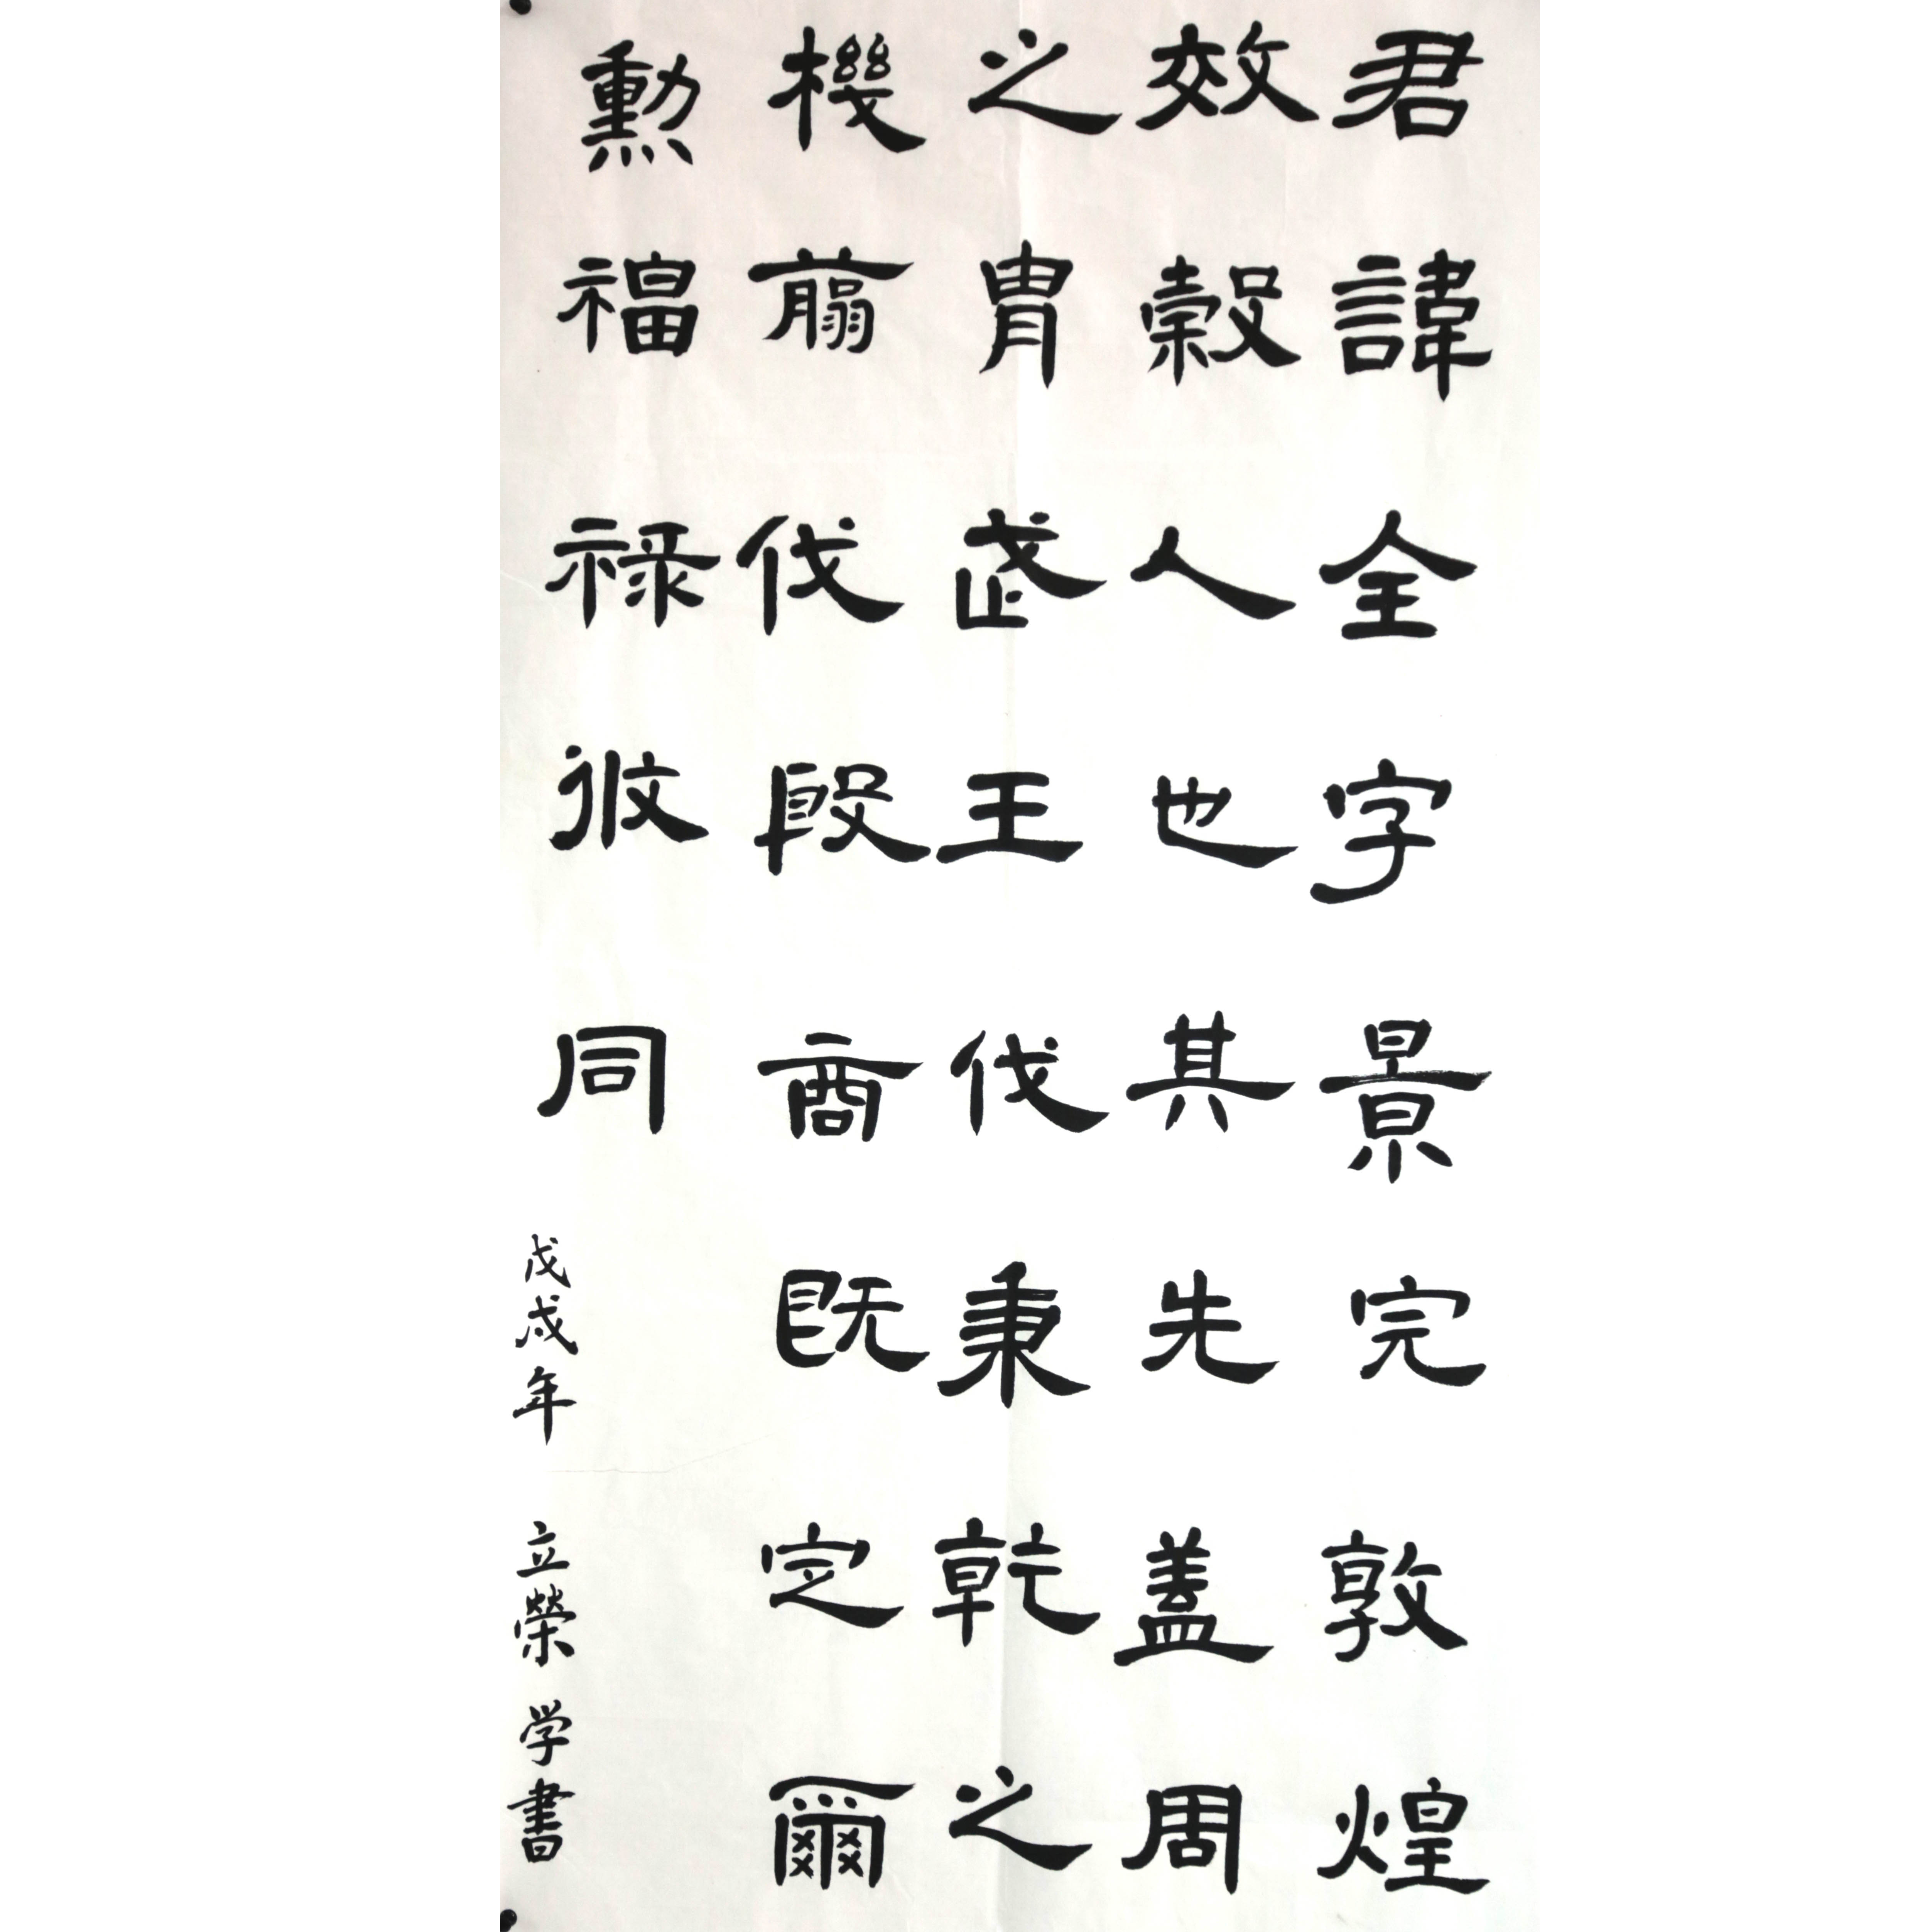 君諱全字景完敦煌
效穀人也其先蓋周
之胄武王伐秉乾之
機翦伐殷商既定爾
勲福祿攸同
戊戌年 立榮 学書